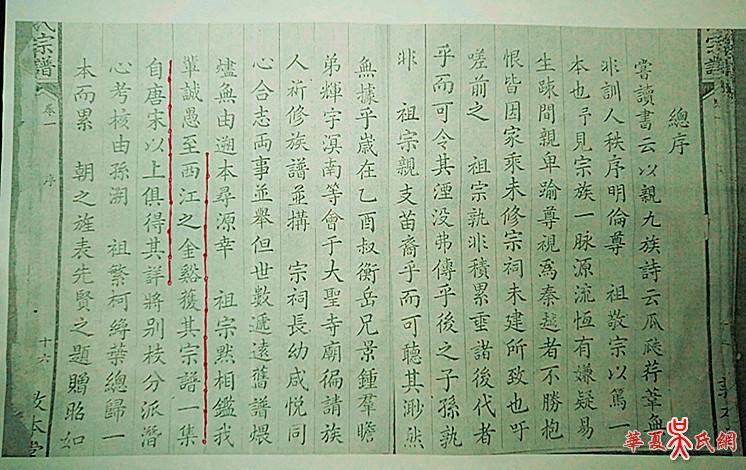 總序
嘗讀書云以親九族詩云瓜瓞荐葦無
非訓人秩序明倫尊 祖敬宗以篤一
本也予見宗族一脉源流恆有嫌疑易
生疎間親卑踰尊視爲秦越者不勝抱
恨皆因家乘未修宗祠未建所致也吁
嗟前之 祖宗孰非積累垂諸後代者
乎而可令其湮没弗傳乎後之子孫孰
非 祖宗親支苗裔乎而可聽其渺然
無據乎歲在乙酉叔衡岳兄景鍾羣瞻
弟輝宇溟南等會于大聖寺廟徧請族
人祈修族譜並搆 宗祠長幼咸悦同
心合志両事並舉但世數遞遠舊譜煨
燼無由遡本尋源幸 祖宗黙相鑑我
輩誠愚至西江之金谿獲其宗譜一集
自唐宋以上俱得其詳將别枝分派潛
心考核由孫溯 祖繁柯縟葉總歸一
本而累 朝之旌表先賢之題贈昭如
宗譜
卷一
序
十六
敦本堂
宗譜
華夏吴氏網